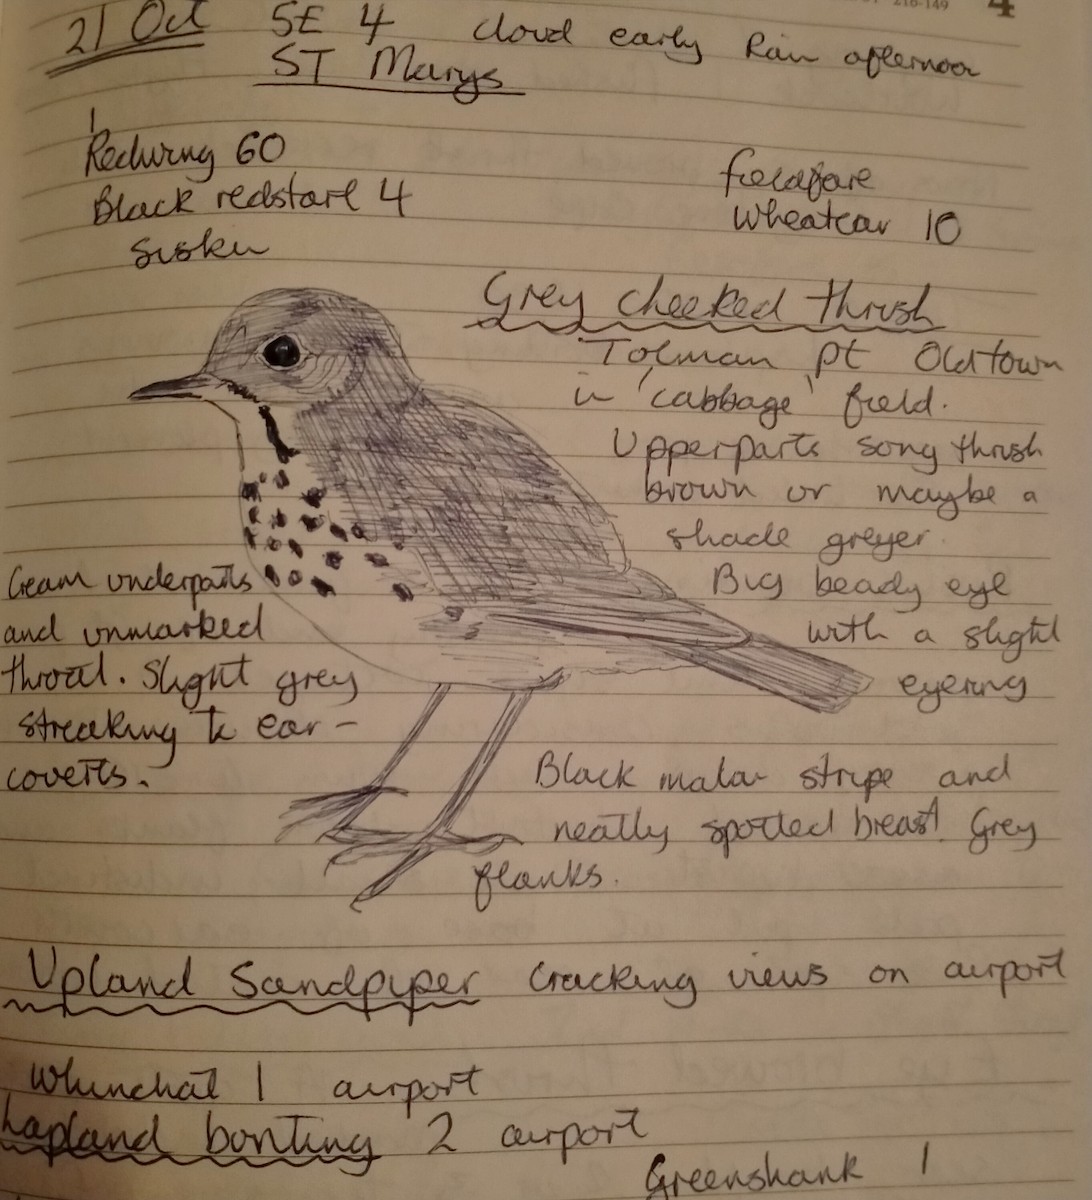 216-149 4
21 Oct SE 4 cloud early Rain afternoon
ST Marys
Redwing 60
Black redstart 4
Siskin
fieldfare
Wheatear 10
Grey cheeked thrush
Tolman pt Oldtown
in 'cabbage' field.
Upperparts song thrush
brown or maybe a
shade greyer.
Big beady eye
with a slight
eyering
Cream underparts
and unmarked
throat. Slight grey
streaking to ear-
coverts.
Black malar stripe and
neatly spotted breast. Grey
flanks.
Upland Sandpiper Cracking views on airport
Whinchat 1 airport
Lapland bunting 2 airport
Greenshank 1